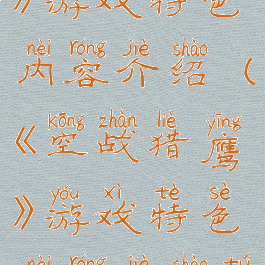 》游戏特色
nèi róng jiè shào
内容介绍（
kōng zhàn liè yīng
《空战猎鹰
yóu xì tè sè
》游戏特色
nèi róng jiè shào